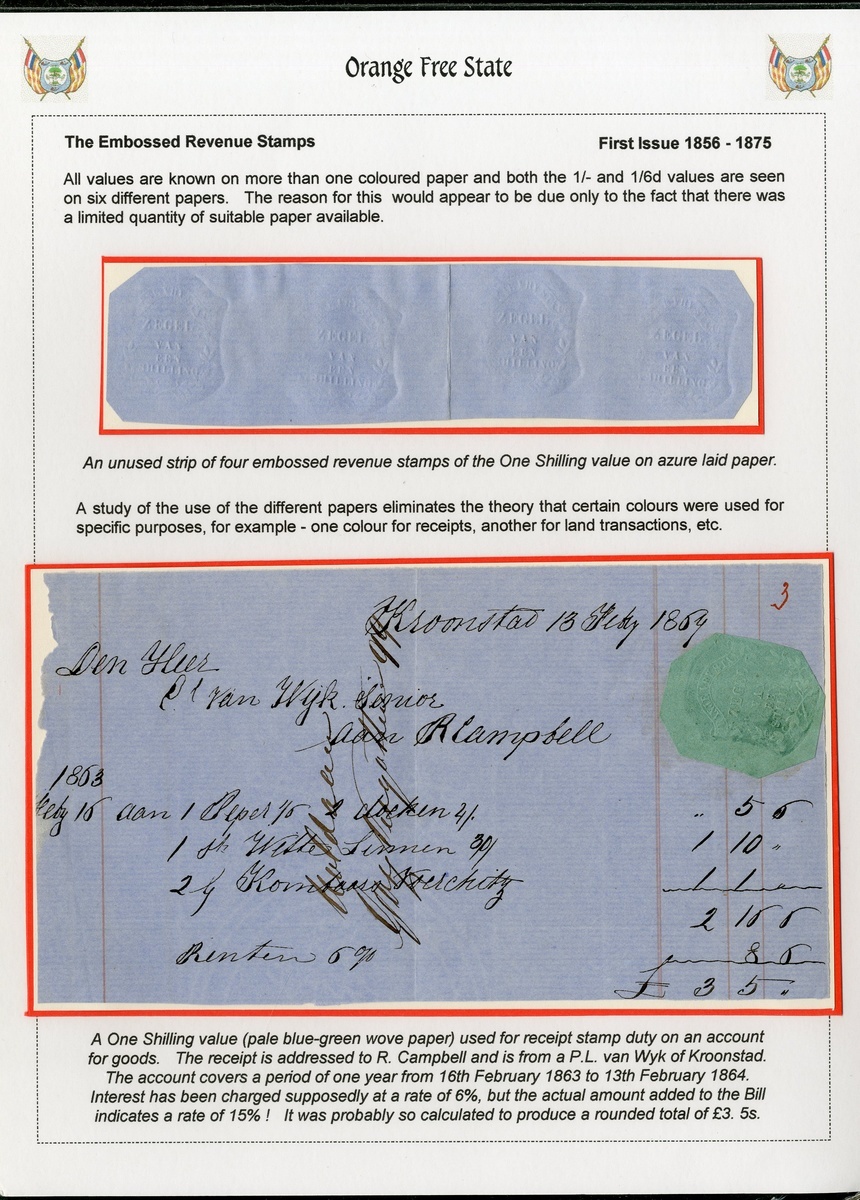 Orange Free State
The Embossed Revenue Stamps
First Issue 1856 - 1875
All values are known on more than one coloured paper and both the 1/- and 1/6d values are seen
on six different papers. The reason for this would appear to be due only to the fact that there was
a limited quantity of suitable paper available.
ZEGEL ZEGEL ZEGEL ZEGEL
VAN VAN VAN VAN
EEN EEN EEN EEN
SHILLING SHILLING SHILLING SHILLING
An unused strip of four embossed revenue stamps of the One Shilling value on azure laid paper.
A study of the use of the different papers eliminates the theory that certain colours were used for
specific purposes, for example - one colour for receipts, another for land transactions, etc.
3
Kroonstad 13 Feby 1864
Den Heer
P L van Wijk Senior
aan R Campbell
1863
Feby 16 aan 1 Peper 1/6 2 doeken 2/. " 5 6
1 Witte Linnen 30/ 1 10 "
2 1 1
2 16 6
Renten 6 % 8 6
£ 3 5 "
A One Shilling value (pale blue-green wove paper) used for receipt stamp duty on an account
for goods. The receipt is addressed to R. Campbell and is from a P.L. van Wyk of Kroonstad.
The account covers a period of one year from 16th February 1863 to 13th February 1864.
Interest has been charged supposedly at a rate of 6%, but the actual amount added to the Bill
indicates a rate of 15% ! It was probably so calculated to produce a rounded total of £3. 5s.